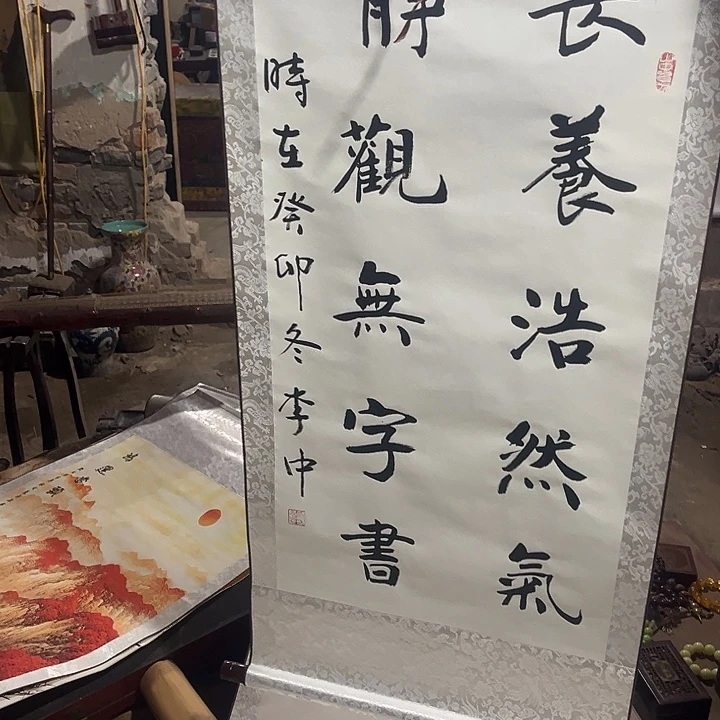 長養浩然氣
靜觀無字書
時在癸卯冬李中